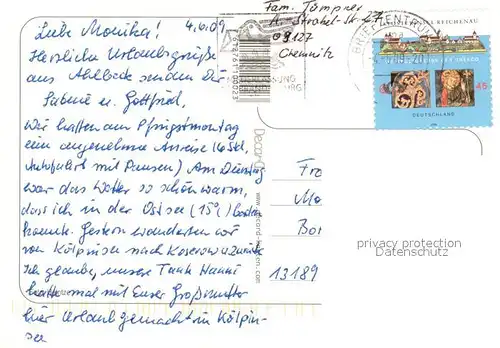 Liebe Monika! 4.6.09
Herzliche Urlaubsgrüße
aus Ahlbeck senden Dir
Sabine u. Gottfried.
Wir hatten am Pfingstmontag
eine angenehme Anreise (6 Std.
Autofahrt mit Pausen) Am Dienstag
war das Wetter so schön warm,
dass ich in der Ostsee (15°) baden
konnte. Gestern wanderten wir
von Kölpinsee nach Koserow u. zurück
Ich glaube, unsere Tante Hanni
hatte mal mit Eurer Großmutter
hier Urlaub gemacht in Kölpin-
see
Fam. Tümpner
A. Strobel-Str. 27
09127
Chemnitz
BRIEFZENTRUM
REICHENAU
45
DEUTSCHLAND
Fr
Mo
Bo
13189
privacy protection
Datenschutz